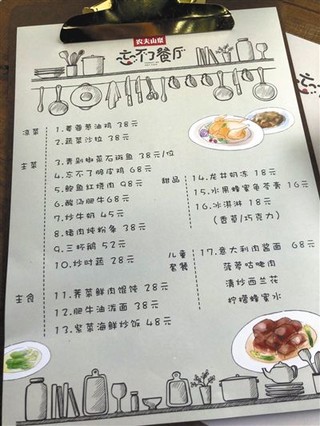 农夫山泉
忘不了餐厅
凉菜
1.葱香葱油鸡 38元
2.蔬菜沙拉 38元
主菜
3.青剁椒蒸石斑鱼 38元/位
4.忘不了脆皮鸡 68元
5.鲍鱼红烧肉 98元
6.酸汤肥牛 68元
7.炒牛奶 45元
8.猪肉炖粉条 38元
9.三杯鹅 52元
10.炒时蔬 28元
主食
11.荠菜鲜肉馄饨 38元
12.肥牛油泼面 38元
13.紫菜海鲜炒饭 48元
甜品
14.龙井奶冻 18元
15.水果蜂蜜龟苓膏 16元
16.冰淇淋 18元
(香草/巧克力)
儿童套餐
17.意大利肉酱面 68元
菠萝咕咾肉
清炒西兰花
柠檬蜂蜜水